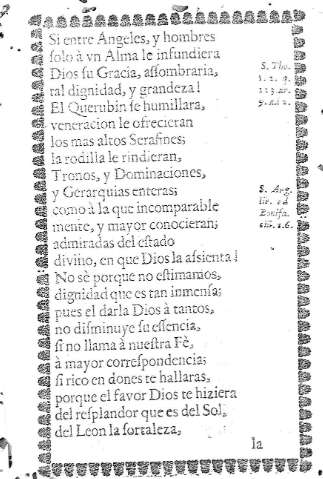 Si entre Angeles, y hombres
ſolo à vn Alma le infundiera
Dios ſu Gracia, aſſombraria,
tal dignidad, y grandeza!
El Querubin ſe humillara,
veneracion le ofrecieran
los mas altos Serafines;
la rodilla le rindieran,
Tronos, y Dominaciones,
y Gerarquias enteras;
como à la que incomparable
mente, y mayor conocieran;
admiradas del eſtado
divino, en que Dios la aſsienta!
No sè porque no eſtimamos,
dignidad que es tan inmenſa;
pues el darla Dios à tantos,
no diſminuye ſu eſſencia,
ſi no llama à nueſtra Fè,
à mayor correſpondencia;
ſi rico en dones te hallaras,
porque el favor Dios te hiziera
del reſplandor que es del Sol,
del Leon la fortaleza,
la
S. Tho.
1. 2. q.
113. ar.
9. ad 2.
S. Aug.
lib. ad
Bonifa.